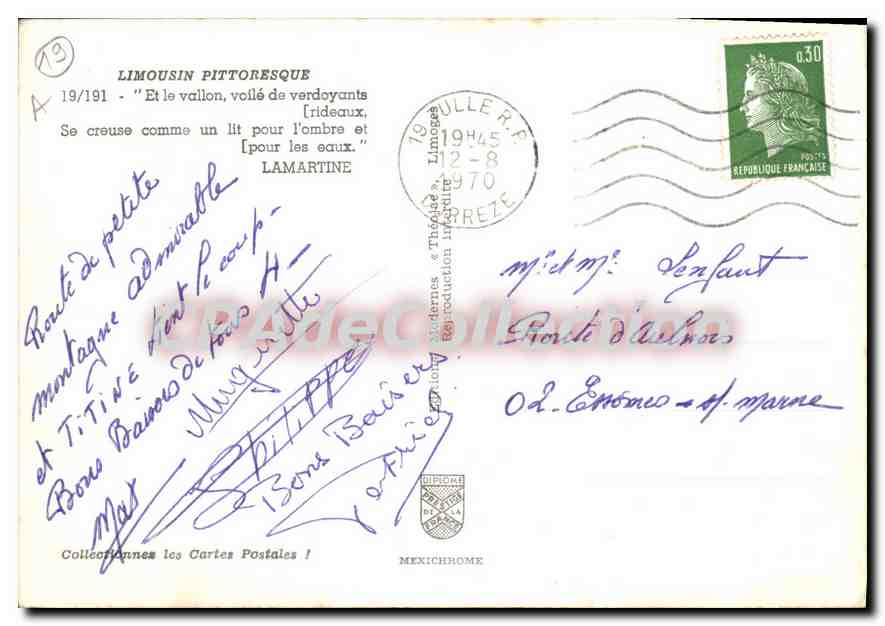 19
A
LIMOUSIN PITTORESQUE
19/191 - "Et le vallon, voilé de verdoyants
[rideaux,
Se creuse comme un lit pour l'ombre et
[pour les eaux."
LAMARTINE
Route de petite
montagne admirable
et TITINE tient le coup -
Bons Baisers de tous 4 -
Max
Muguette
Philippe
Bons Baisers
Patrice
Collectionnez les Cartes Postales !
Editions Modernes « Théojac », Limoges
Reproduction interdite
DIPLOME
PRESTIGE
DE LA
FRANCE
MEXICHROME
19 TULLE R.P.
19H45
12-8
1970
CORREZE
0,30
POSTES
REPUBLIQUE FRANÇAISE
Mr et Me Lenfant
Route d'Aulnois
02. Essômes - s/. Marne
CPAdeCollection